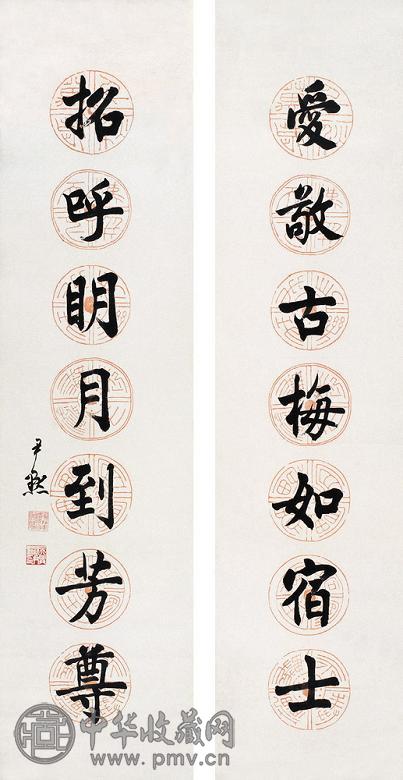 愛敬古梅如宿士
招呼明月到芳尊
尹默
中华收藏网
www.pmv.cn